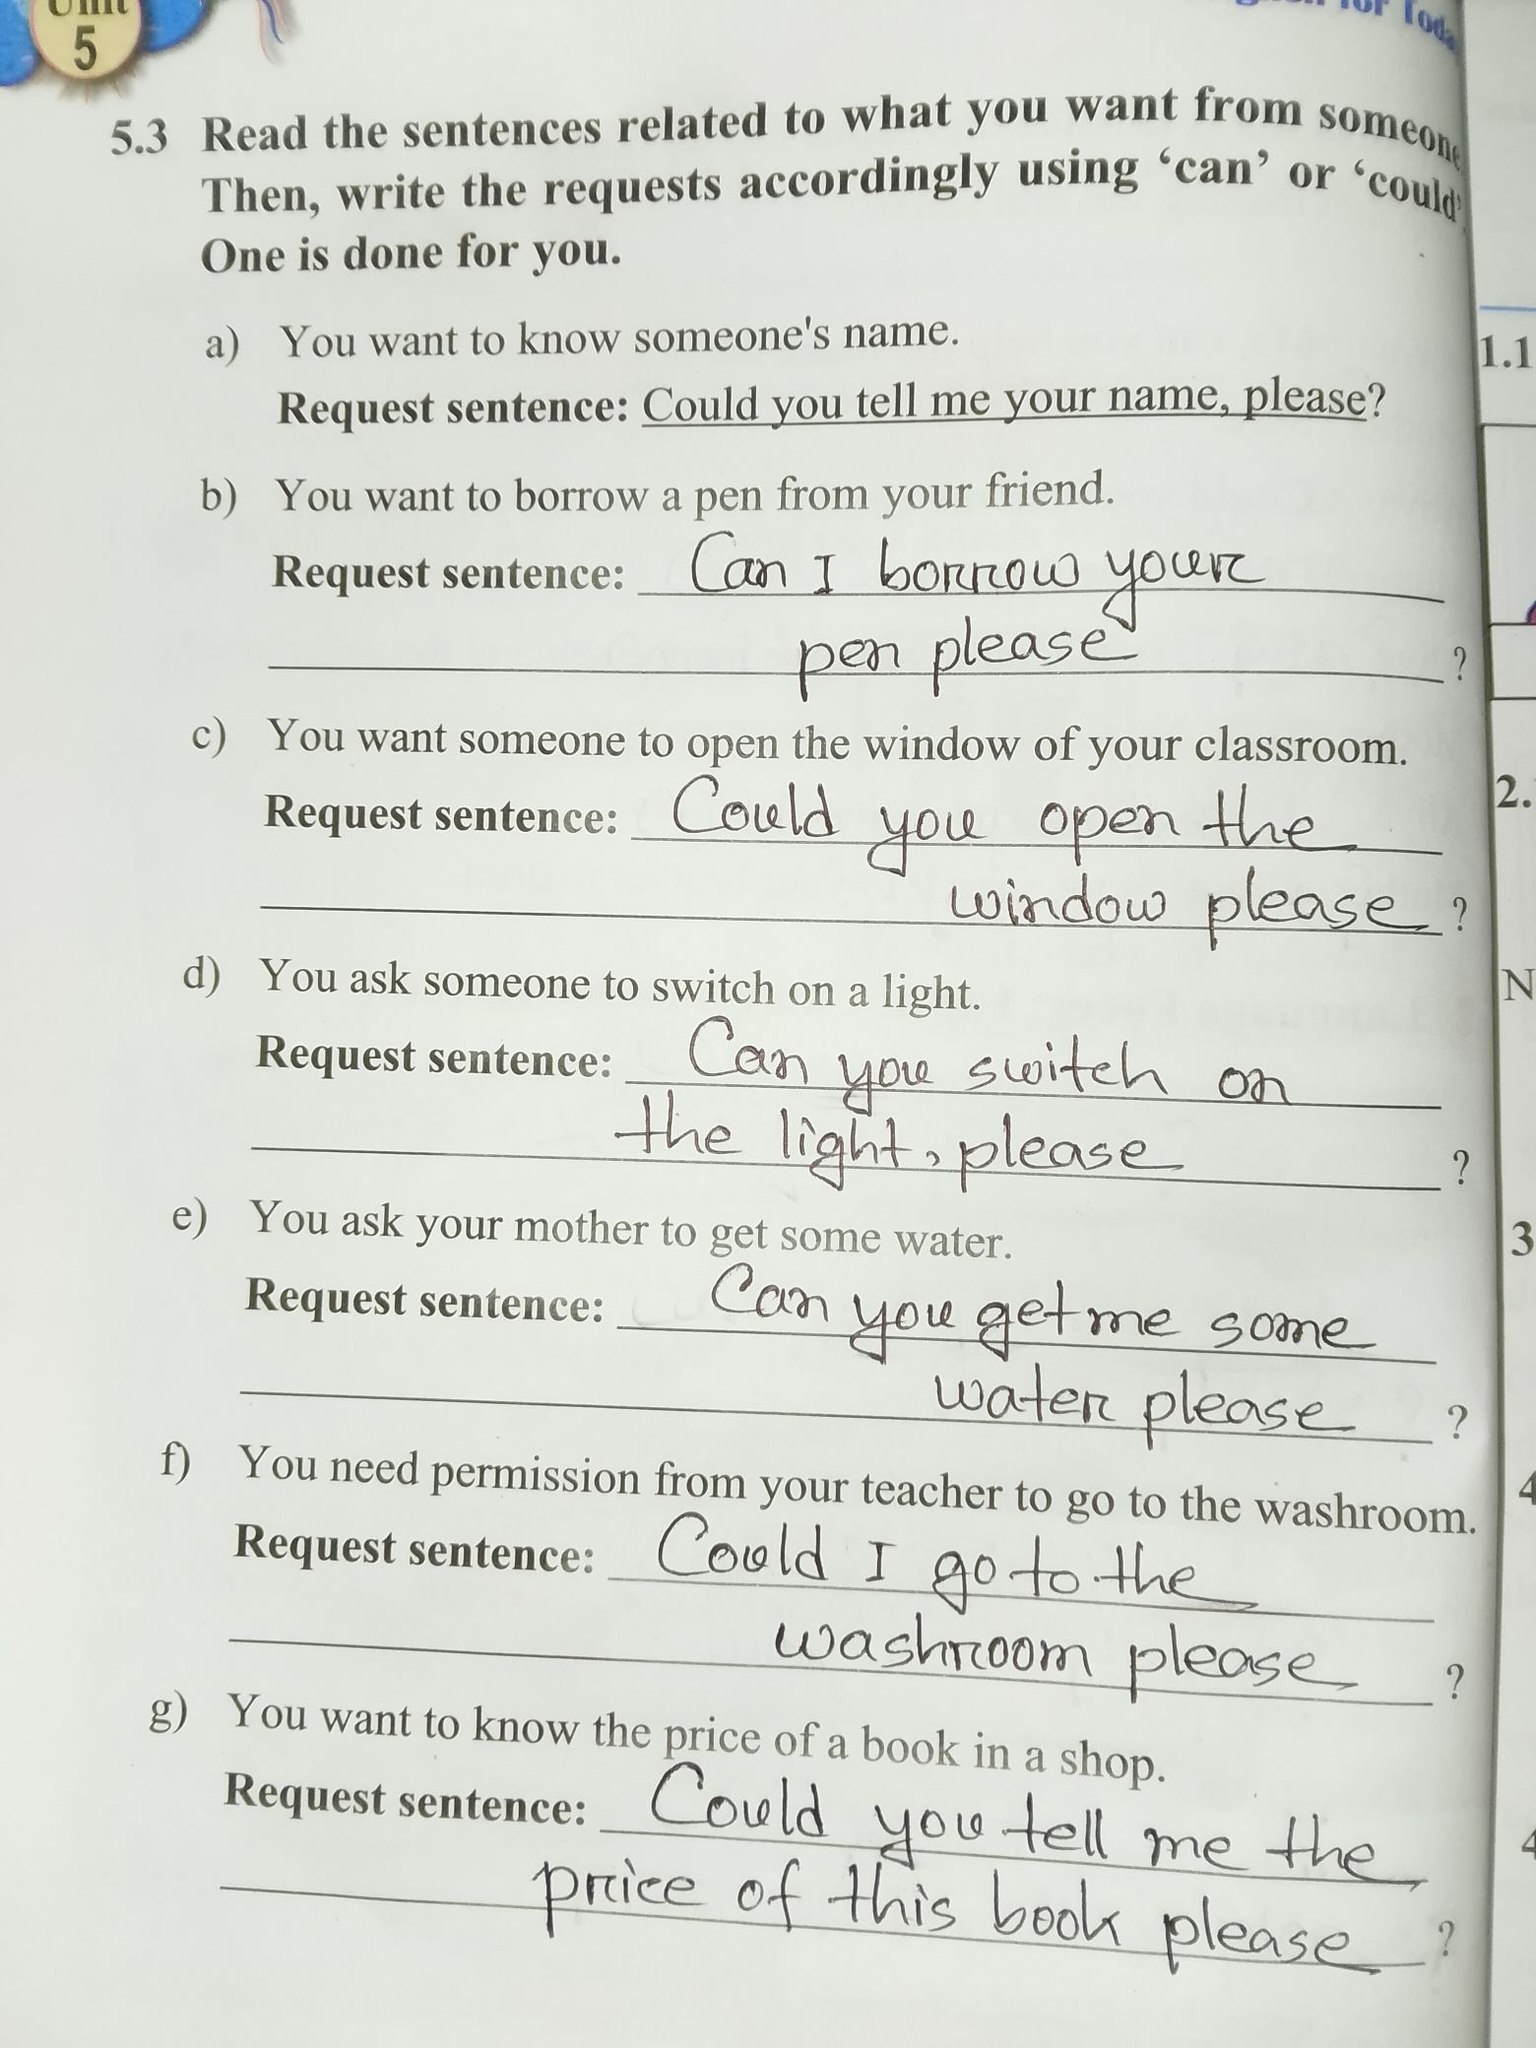 Unit
5
for Toda
5.3 Read the sentences related to what you want from someone
Then, write the requests accordingly using ‘can’ or ‘could’.
One is done for you.
a) You want to know someone's name.
Request sentence: Could you tell me your name, please?
b) You want to borrow a pen from your friend.
Request sentence: Can I borrow your
pen please ?
c) You want someone to open the window of your classroom.
Request sentence: Could you open the
window please ?
d) You ask someone to switch on a light.
Request sentence: Can you switch on
the light, please ?
e) You ask your mother to get some water.
Request sentence: Can you get me some
water please ?
f) You need permission from your teacher to go to the washroom.
Request sentence: Could I go to the
washroom please ?
g) You want to know the price of a book in a shop.
Request sentence: Could you tell me the
price of this book please ?
1.1
2.
N
3
4
4